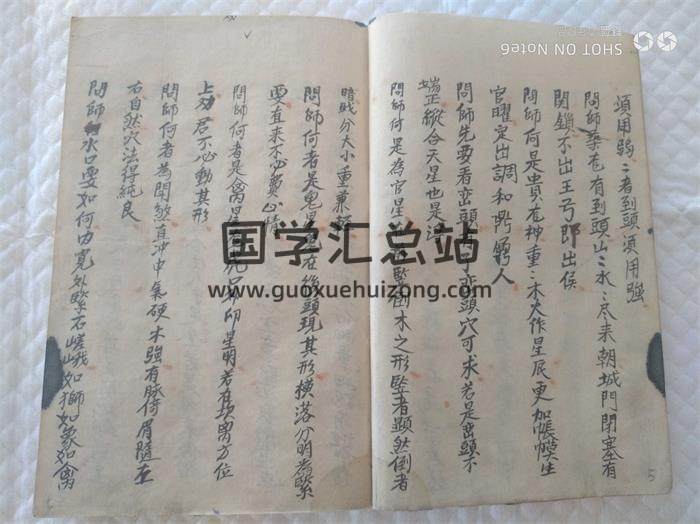 須用弱弱者到頭須用強
問師葬在有到頭山山水水尽来朝城門閉塞有
関鎖不出王号即出侯
問師何是貴在神重重木大作星辰更加帳幙生
官曜定出調和
人
問師先要看峦頭
峦頭穴可求若是峦頭不
端正縱合天星也是
問師何是為官星
木之形竪者顯然倒者
暗眂分大小重兼
問師何者是鬼星
在後頭現其形横落分明為緊
要直来不必費心情
問師何者是禽星
印星明若在
禽方位
上
君不必動其形
問師何者為閗煞直冲中氣硬木強有脉倚眉隨左
右自然穴法得純良
問師水口要如何内寛外緊石嵯峨如獅如象如禽
5
SHOT ON NOTE6
国学汇总站
www.guoxuehuizong.com